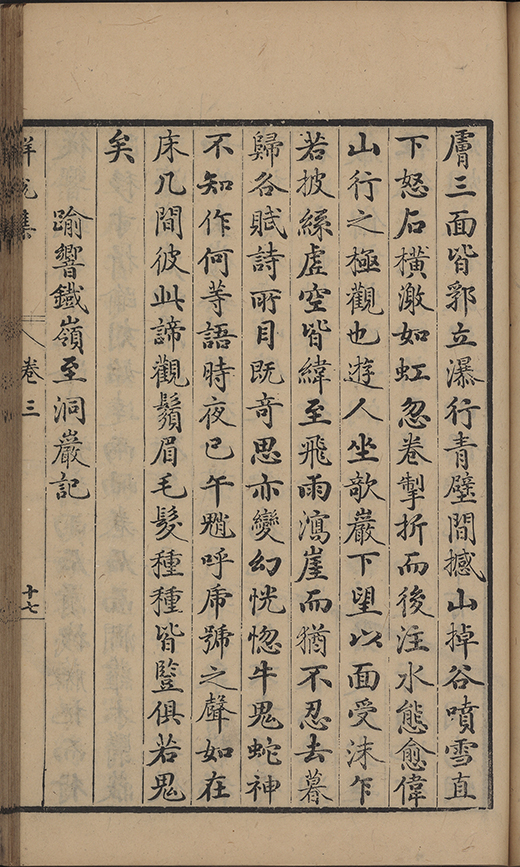 膚三面皆郛立瀑行青壁間撼山掉谷噴雪直
下怒石橫激如虹忽卷掣折而後注水態愈偉
山行之極觀也遊人坐欹巖下望以面受沫乍
若披絲虛空皆緯至飛雨瀉崖而猶不忍去暮
歸各賦詩所目既奇思亦變幻恍惚牛鬼蛇神
不知作何等語時夜已午魈呼虎號之聲如在
床几間彼此諦觀鬚眉毛髮種種皆豎俱若鬼
矣
踰響鐵嶺至洞巖記
集 卷三 十七